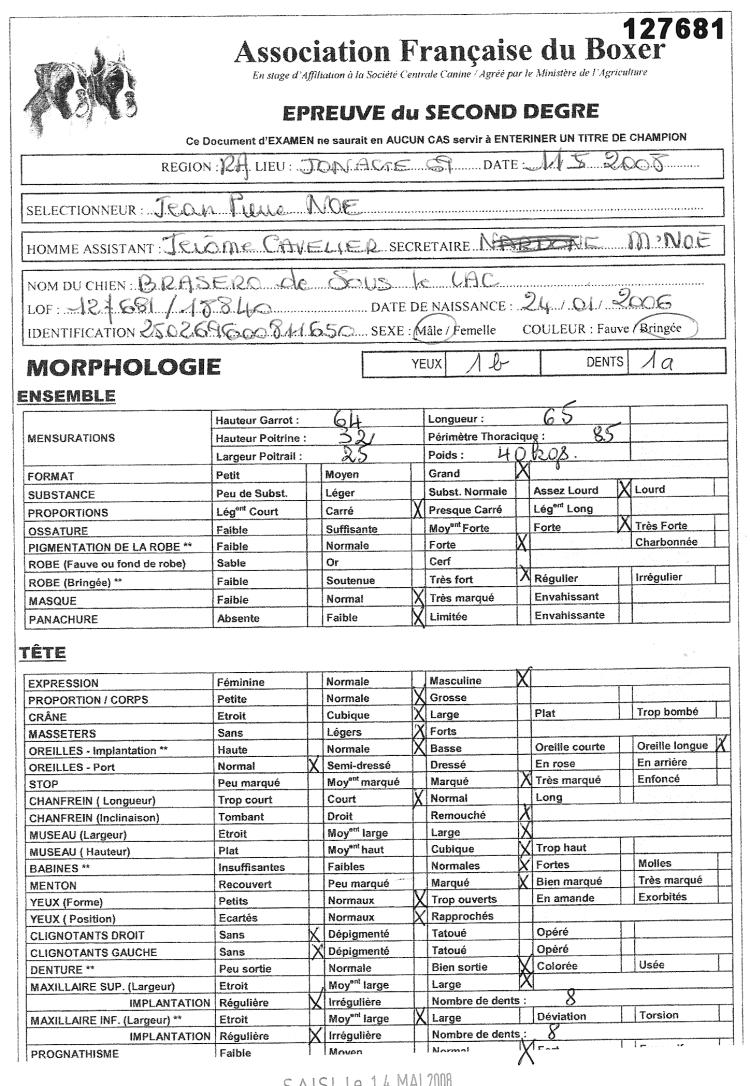 127681
Association Française du Boxer
En stage d'Affiliation à la Société Centrale Canine / Agréé par le Ministère de l'Agriculture
EPREUVE du SECOND DEGRE
Ce Document d'EXAMEN ne saurait en AUCUN CAS servir à ENTERINER UN TITRE DE CHAMPION
REGION : RA LIEU : JONAGE 69 DATE : 11 5 2008
SELECTIONNEUR : Jean Pierre NOE
HOMME ASSISTANT : Jerôme CAVELIER SECRETAIRE NARDONE M. NOE
NOM DU CHIEN : BRASERO de Sous le LAC
LOF : 127681/18840 DATE DE NAISSANCE : 24/01/2006
IDENTIFICATION 250269600811650 SEXE : Mâle / Femelle COULEUR : Fauve / Bringée
MORPHOLOGIE YEUX 1b DENTS 1a
ENSEMBLE
MENSURATIONS Hauteur Garrot : 64 Longueur : 65
Hauteur Poitrine : 32 Périmètre Thoracique : 85
Largeur Poitrail : 25 Poids : 40 kgs.
FORMAT Petit Moyen Grand X
SUBSTANCE Peu de Subst. Léger Subst. Normale Assez Lourd X Lourd
PROPORTIONS Légent Court Carré X Presque Carré Légent Long
OSSATURE Faible Suffisante Moyent Forte Forte X Très Forte
PIGMENTATION DE LA ROBE ** Faible Normale Forte X Charbonnée
ROBE (Fauve ou fond de robe) Sable Or Cerf
ROBE (Bringée) ** Faible Soutenue Très fort X Régulier Irrégulier
MASQUE Faible Normal X Très marqué Envahissant
PANACHURE Absente Faible X Limitée Envahissante
TÊTE
EXPRESSION Féminine Normale Masculine X
PROPORTION / CORPS Petite Normale X Grosse
CRÂNE Etroit Cubique X Large Plat Trop bombé
MASSETERS Sans Légers X Forts
OREILLES - Implantation ** Haute Normale X Basse Oreille courte Oreille longue X
OREILLES - Port Normal X Semi-dressé Dressé En rose En arrière
STOP Peu marqué Moyent marqué Marqué X Très marqué Enfoncé
CHANFREIN ( Longueur) Trop court Court X Normal Long
CHANFREIN (Inclinaison) Tombant Droit Remouché X
MUSEAU (Largeur) Etroit Moyent large Large X
MUSEAU ( Hauteur) Plat Moyent haut Cubique X Trop haut
BABINES ** Insuffisantes Faibles Normales X Fortes Molles
MENTON Recouvert Peu marqué Marqué X Bien marqué Très marqué
YEUX (Forme) Petits Normaux X Trop ouverts En amande Exorbités
YEUX ( Position) Ecartés Normaux X Rapprochés
CLIGNOTANTS DROIT Sans X Dépigmenté Tatoué Opéré
CLIGNOTANTS GAUCHE Sans X Dépigmenté Tatoué Opéré
DENTURE ** Peu sortie Normale Bien sortie X Colorée Usée
MAXILLAIRE SUP. (Largeur) Etroit Moyent large Large X
IMPLANTATION Régulière X Irrégulière Nombre de dents : 8
MAXILLAIRE INF. (Largeur) ** Etroit Moyent large X Large Déviation Torsion
IMPLANTATION Régulière X Irrégulière Nombre de dents : 8
PROGNATHISME Faible Moyen Normal X Fort
SAISI le 14 MAI 2008